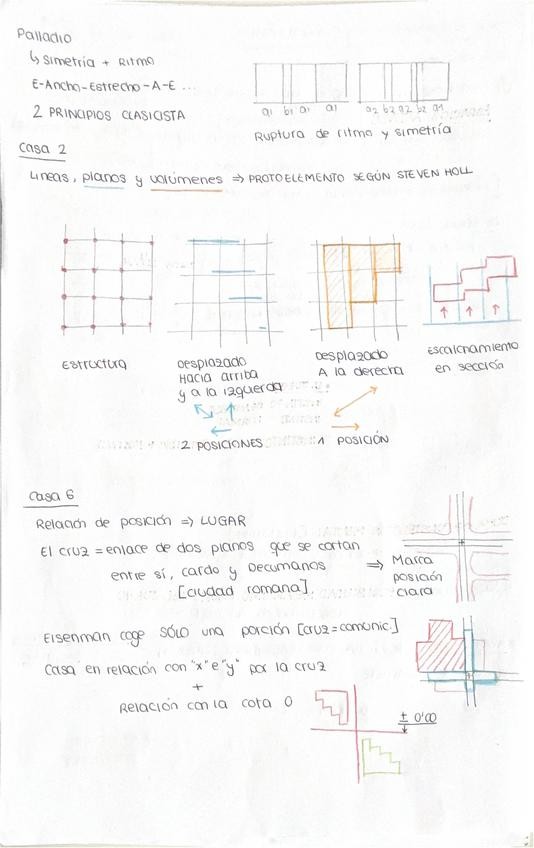 Palladio
↳ Simetría + Ritmo
E-Ancho-Estrecho-A-E ...
2 PRINCIPIOS CLASICISTA
a1 b1 a1 a1
a2 b2 a2 b2 a1
Ruptura de ritmo y simetría
Casa 2
Líneas, planos y volúmenes ⇒ PROTOELEMENTO SEGÚN STEVEN HOLL
Estructura
Desplazado
Hacia arriba
y a la izquerda
2 POSICIONES
Desplazado
A la derecha
1 POSICIÓN
Escalonamiento
en sección
Casa 6
Relación de posición => LUGAR
El cruz = enlace de dos planos que se cortan
entre sí, cardo y Decumanos
[ciudad romana].
⇒ Marca
posición
clara
Eisenman coge SÓLO una porción [cruz=comunic.]
Casa en relación con "x" e "y" por la cruz
+
Relación con la cota 0
± 0'00